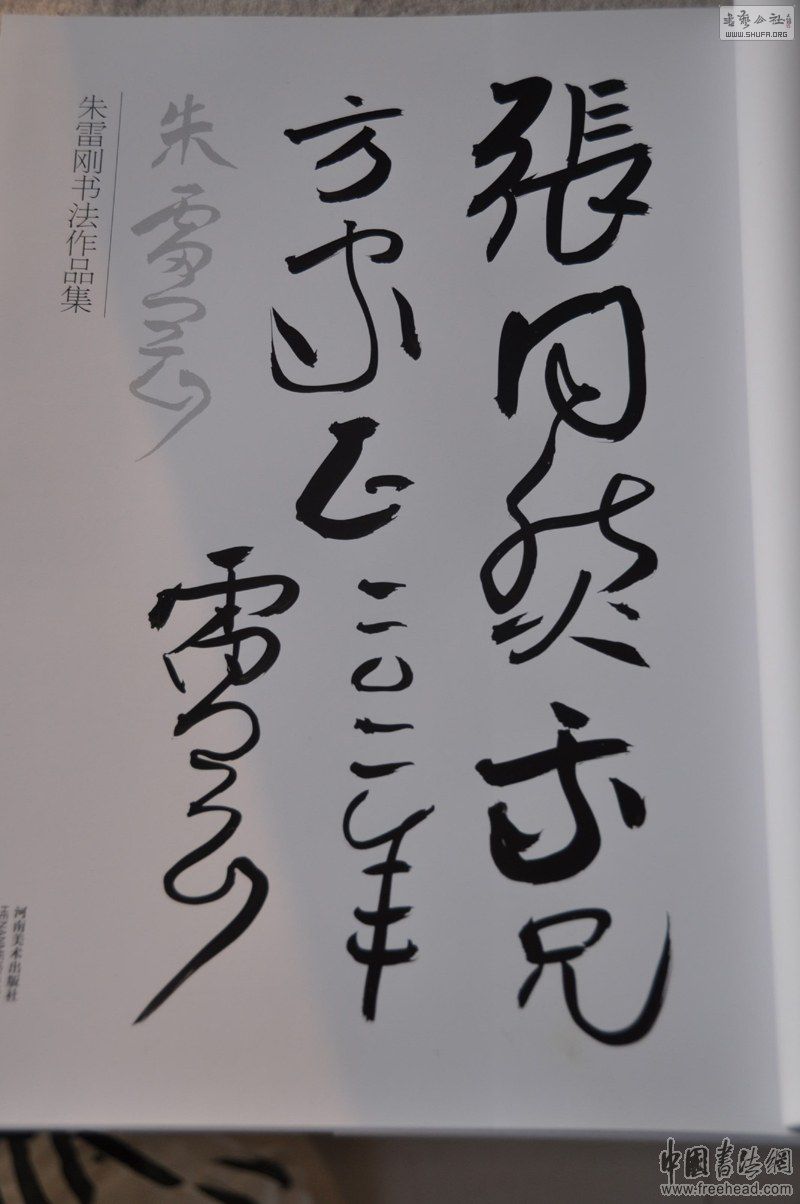 張同然我兄
方家正
二〇一一年
雷刚
朱雷刚
朱雷刚书法作品集
河南美术出版社
书艺公社
WWW.SHUFA.ORG
中国書法網
www.freehead.com